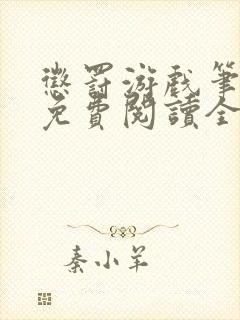 懲罰游戲筆
免費閱讀全
秦小羊